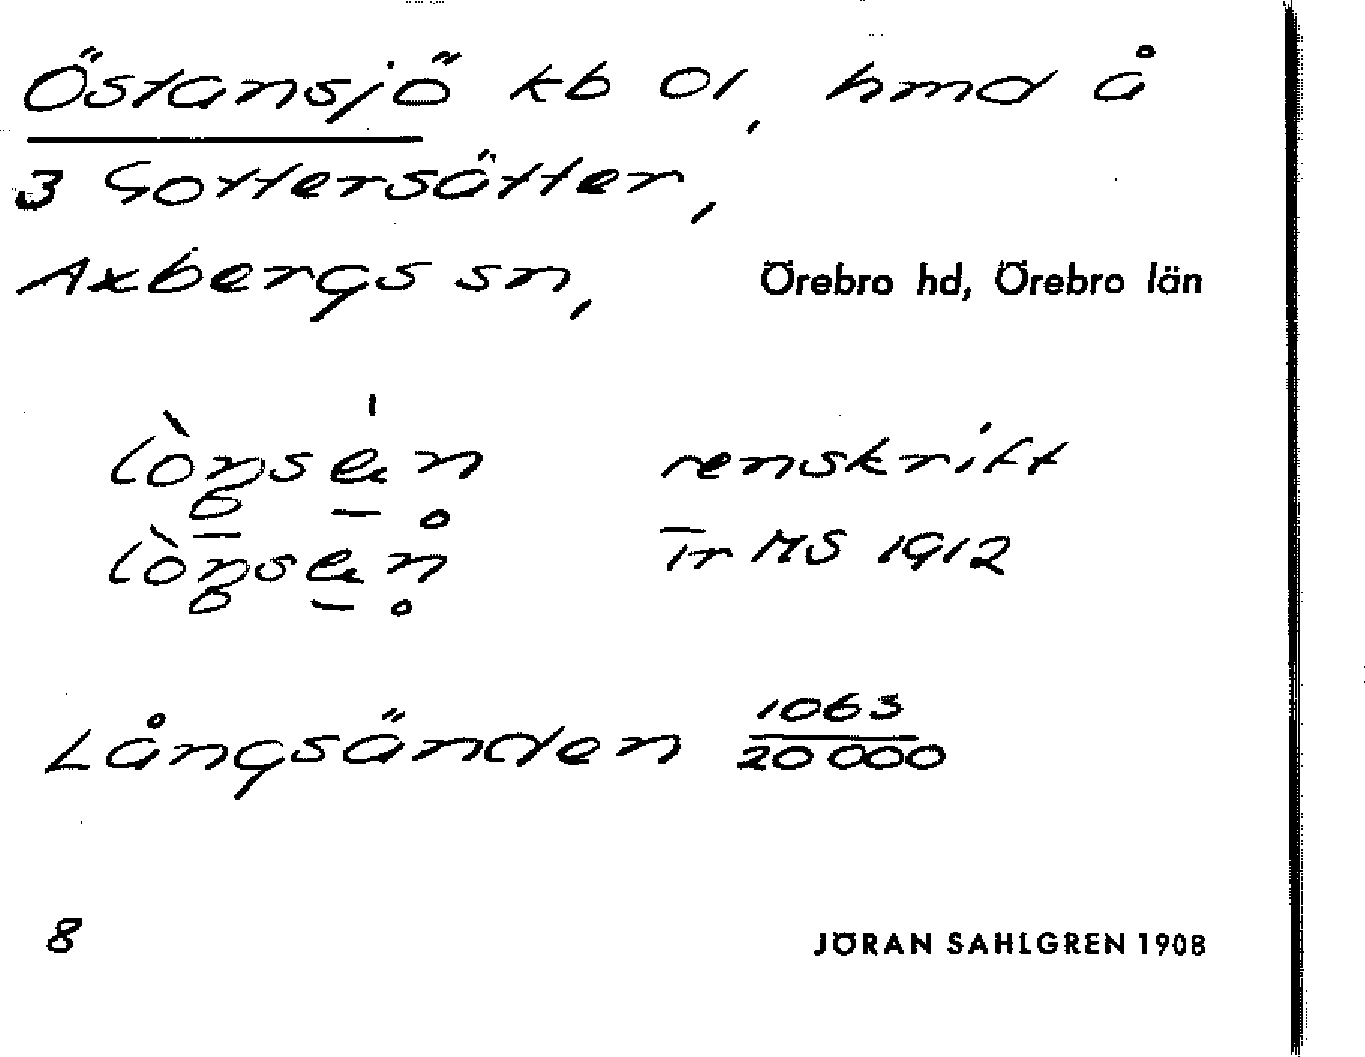 Östansjö kb Ol, hmd å
3 Gottersätter,
Axbergs sn, Örebro hd, Örebro län
renskrift
Tr MS 1912
Långsänden 1063/20000
8 JÖRAN SAHLGREN 1908